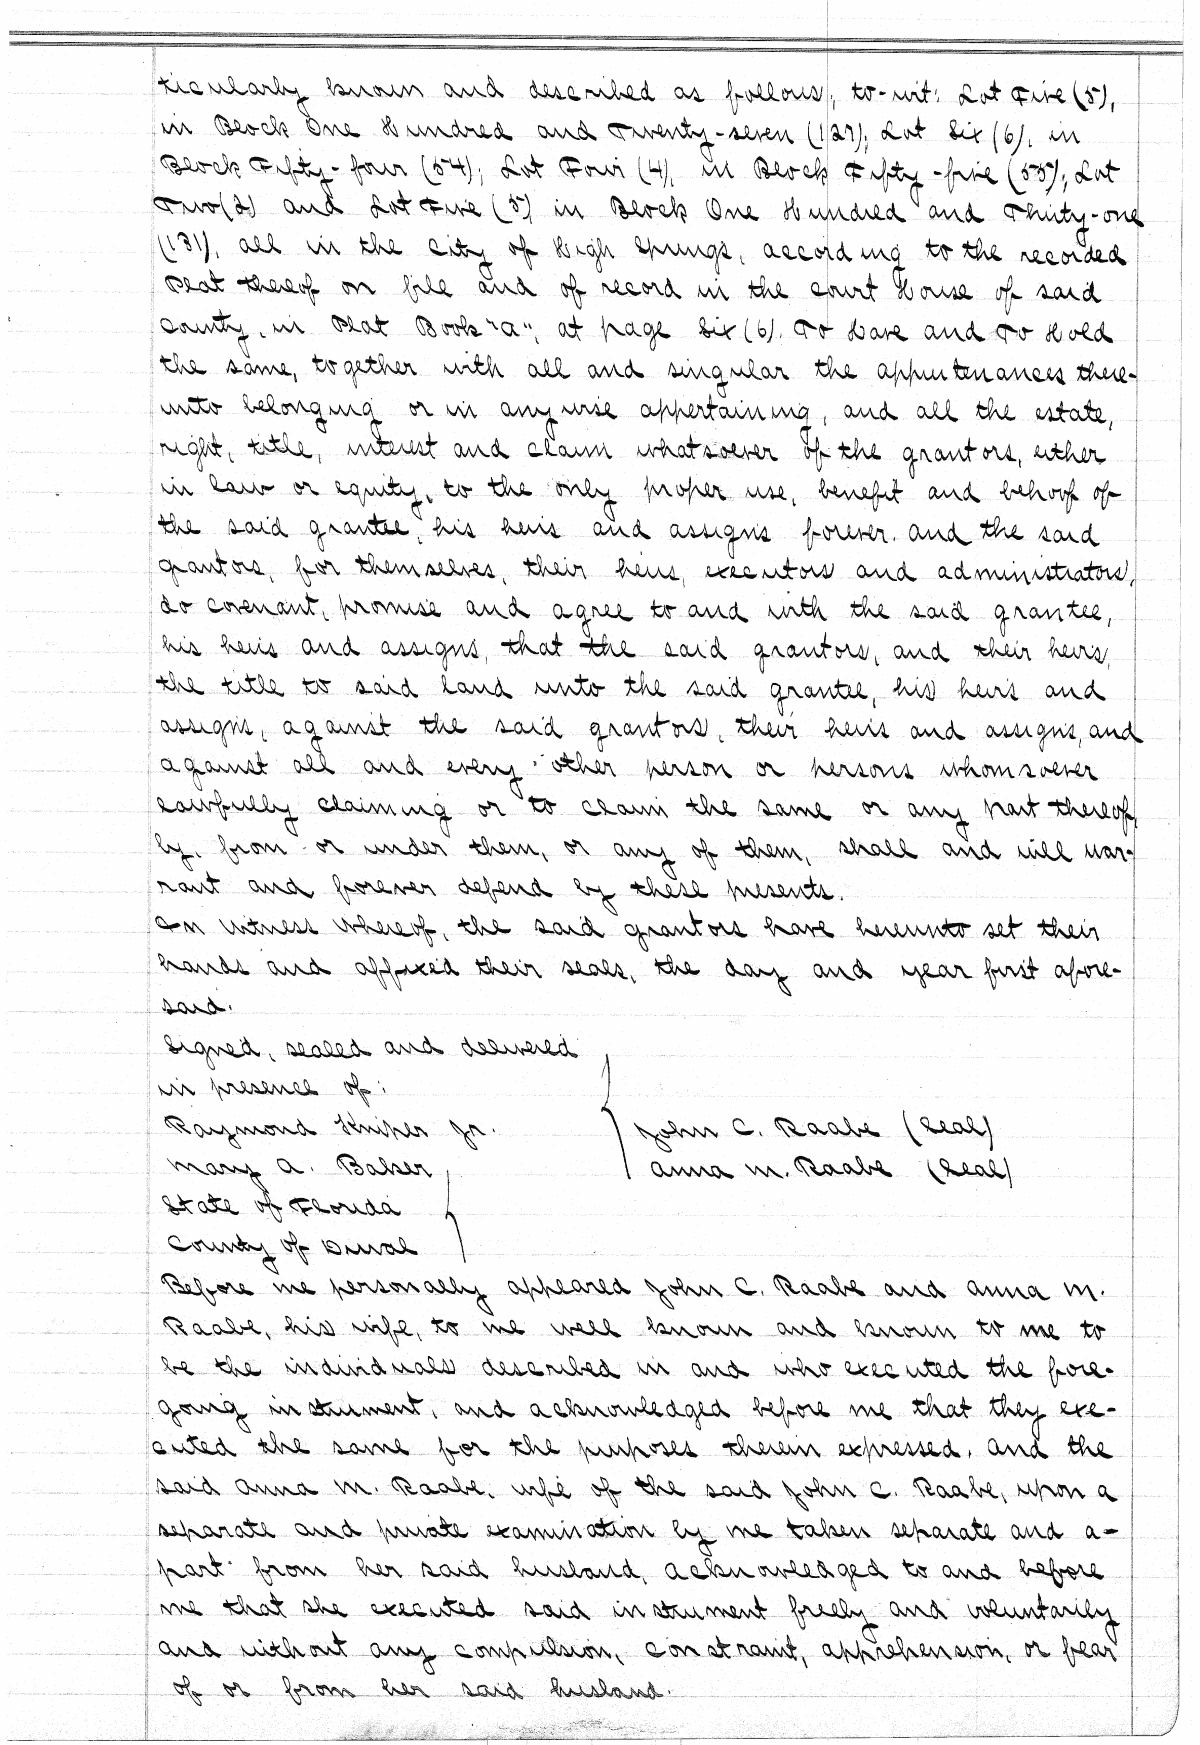 ticularly known and described as follows, to-wit: Lot Five (5),
in Block One Hundred and Twenty-seven (127); Lot Six (6), in
Block Fifty-four (54); Lot Four (4), in Block Fifty-five (55); Lot
Two (2) and Lot Five (5) in Block One Hundred and Thirty-one
(131), all in the City of High Springs, according to the recorded
Plat thereof on file and of record in the Court House of said
County, in Plat Book "A", at page Six (6). To Have and To Hold
the same, together with all and singular the appurtenances there-
unto belonging or in anywise appertaining, and all the estate,
right, title, interest and claim whatsoever of the grantors, either
in law or equity, to the only proper use, benefit and behoof of
the said grantee, his heirs and assigns forever. And the said
grantors, for themselves, their heirs, executors and administrators,
do covenant, promise and agree to and with the said grantee,
his heirs and assigns, that the said grantors, and their heirs,
the title to said land unto the said grantee, his heirs and
assigns, against the said grantors, their heirs and assigns, and
against all and every other person or persons whomsoever
lawfully claiming or to claim the same or any part thereof
by, from or under them, or any of them, shall and will war-
rant and forever defend by these presents.
In Witness Whereof, the said grantors have hereunto set their
hands and affixed their seals, the day and year first afore-
said.
Signed, sealed and delivered
in presence of:
Raymond Kniper Jr. John C. Raabe (Seal)
Mary A. Baker Anna M. Raabe (Seal)
State of Florida
County of Duval
Before me personally appeared John C. Raabe and Anna M.
Raabe, his wife, to me well known and known to me to
be the individuals described in and who executed the fore-
going instrument, and acknowledged before me that they exe-
cuted the same for the purposes therein expressed. And the
said Anna M. Raabe, wife of the said John C. Raabe, upon a
separate and private examination by me taken separate and a-
part from her said husband, acknowledged to and before
me that she executed said instrument freely and voluntarily
and without any compulsion, constraint, apprehension, or fear
of or from her said husband.